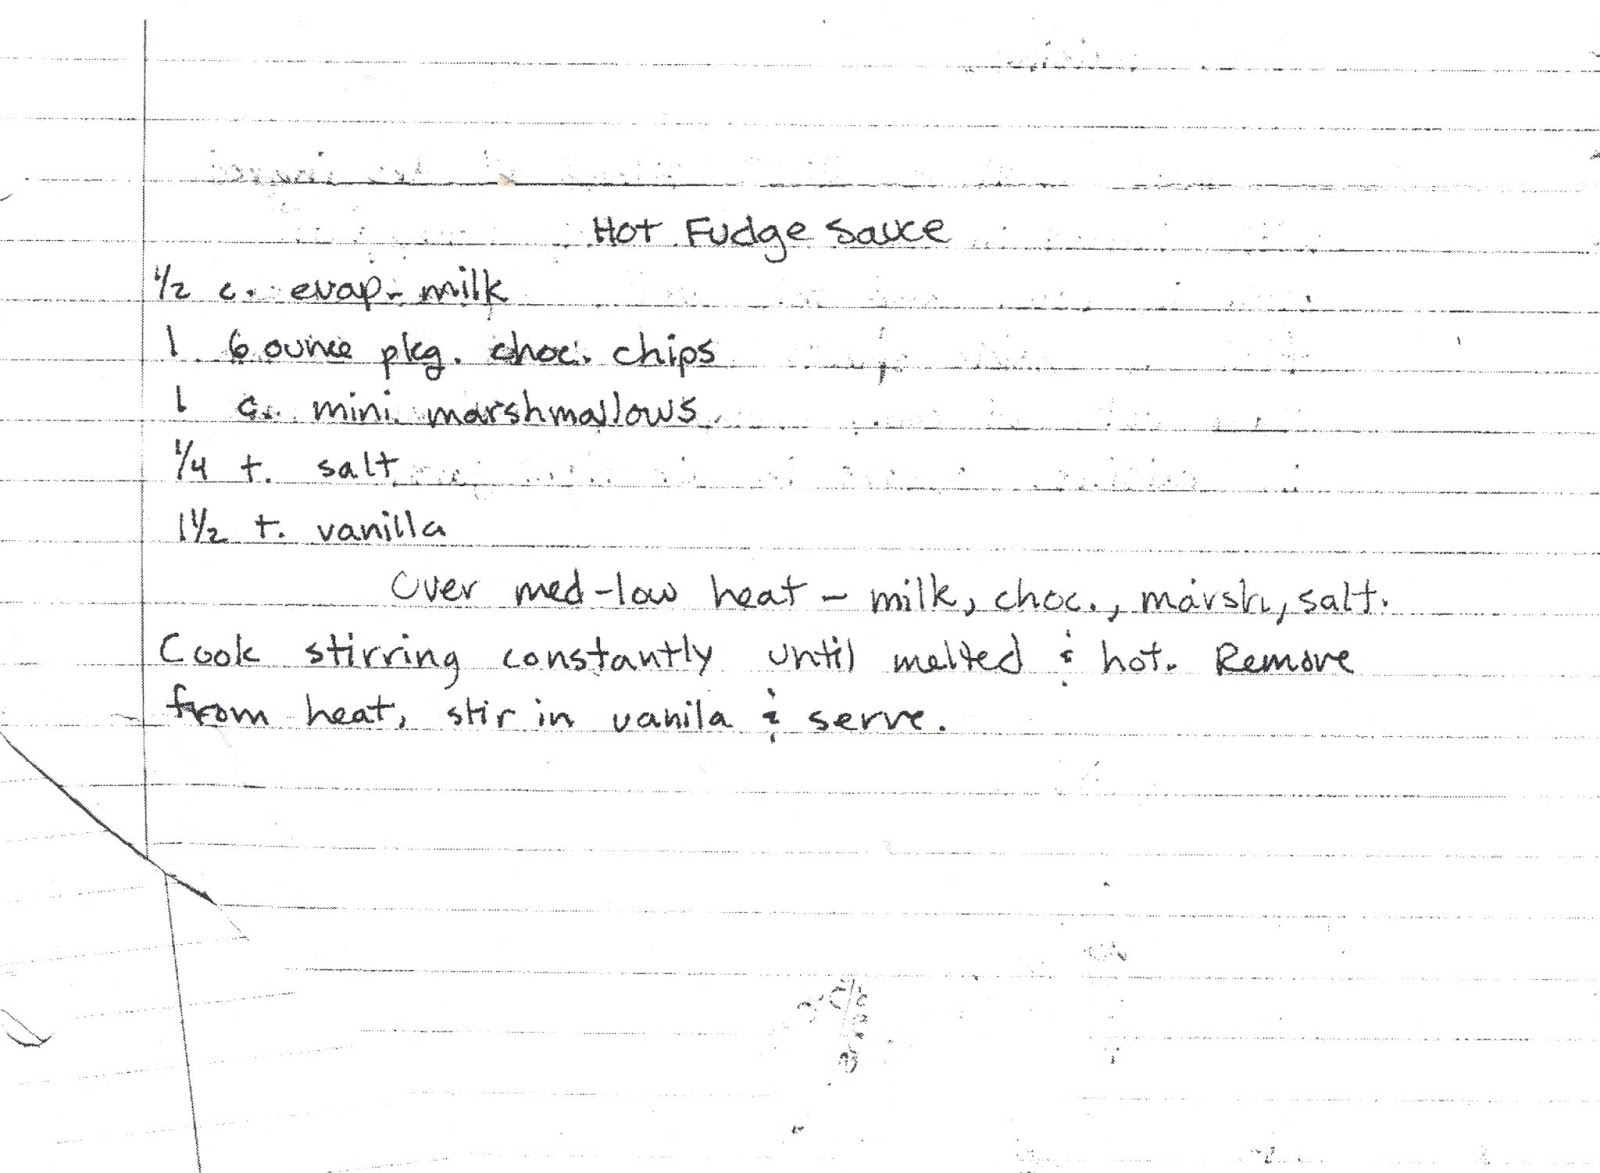 Hot Fudge Sauce
1/2 c. evap. milk
1 6 ounce pkg. choc. chips
1 c. mini marshmallows
1/4 t. salt
1 1/2 t. vanilla
Over med-low heat - milk, choc., marsh, salt.
Cook stirring constantly until melted & hot. Remove
from heat, stir in vanila & serve.